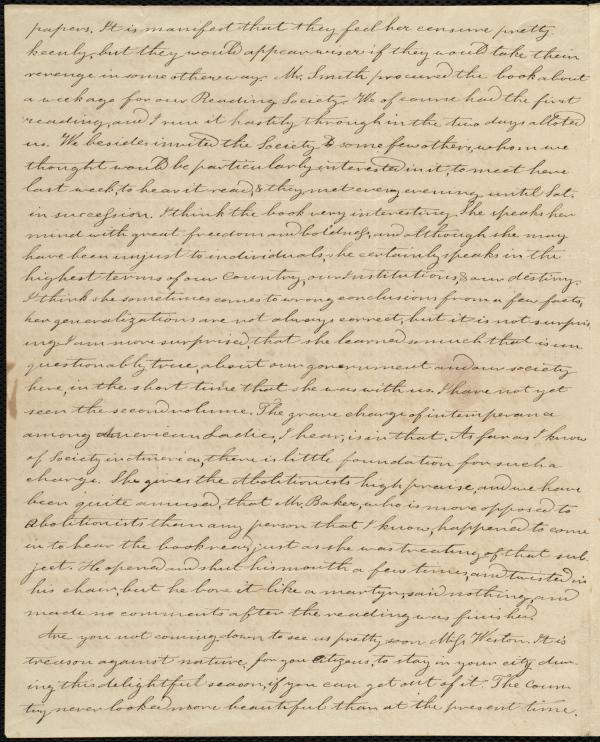 papers. It is manifest that they feel her censure pretty
keenly, but they would appear wiser if they would take their
revenge in some other way. Mr. Smith procured the book about
a week ago for our Reading Society. We of course had the first
reading, and I run it hastily through in the two days allotted
us. We besides invited the Society & some few others, whom we
thought would be particularly interested in it, to meet here
last week, to hear it read, & they met every evening until Sat.
in succession. I think the book very interesting. She speaks her
mind with great freedom and boldness, and although she may
have been unjust to individuals, she certainly speaks in the
highest terms of our Country, our Institutions, & our destiny.
I think she sometimes comes to wrong conclusions from a few facts,
her generalizations are not always correct, but it is not surpris
ing. I am more surprised, that she learned so much that is un
questionably true, about our government and our society
here, in the short time that she was with us. I have not yet
seen the second volume. The grave charge of intemperance
among American Ladies, I hear, is in that. As far as I know
of Society in America, there is little foundation for such a
charge. She gives the Abolitionists high praise, and we have
been quite amused, that Mr. Baker, who is more opposed to
Abolitionists than any person that I know, happened to come
in to hear the book read, just as she was treating of that sub
ject. He opened and shut his mouth a few times, and twisted in
his chair, but he bore it like a martyr, said nothing, and
made no comments after the reading was finished.
Are you not coming down to see us pretty soon Miss Weston. It is
treason against nature, for you citizens, to stay in your city dur
ing this delightful season, if you can get out of it. The coun
try never looked more beautiful than at the present time.